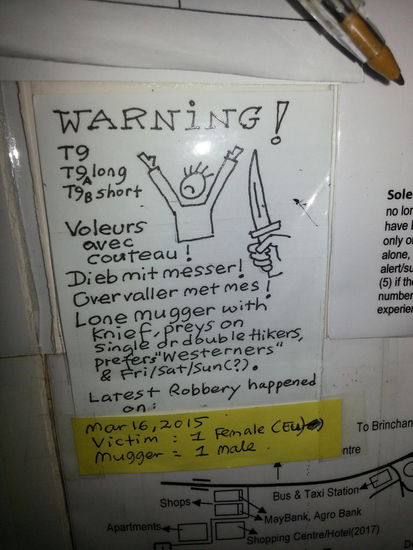 WARNiNG!
T9
T9A long
T9B short
Voleurs
avec
couteau!
Dieb mit messer!
Overvaller met mes!
Lone mugger with
Knief, preys on
single or double Hikers,
prefers "Westerners"
& Fri/Sat/Sun(?).
Latest Robbery happened
on:
Mar 16, 2015
Victim : 1 Female (EU)
Mugger = 1 Male
Sole
no lon
have b
only o
alone,
alert/su
(5) if the
number
experie
To Brinchan
ntre
Bus & Taxi Station
Shops
MayBank, Agro Bank
Apartments
Shopping Centre/Hotel(2017)